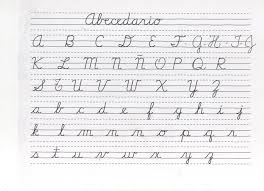 Abecedario
A B C D E F G H I J
K L M N Ñ O P Q R
S T U V W X Y Z
a b c d e f g h i j
k l m n ñ o p q r
s t u v w x y z